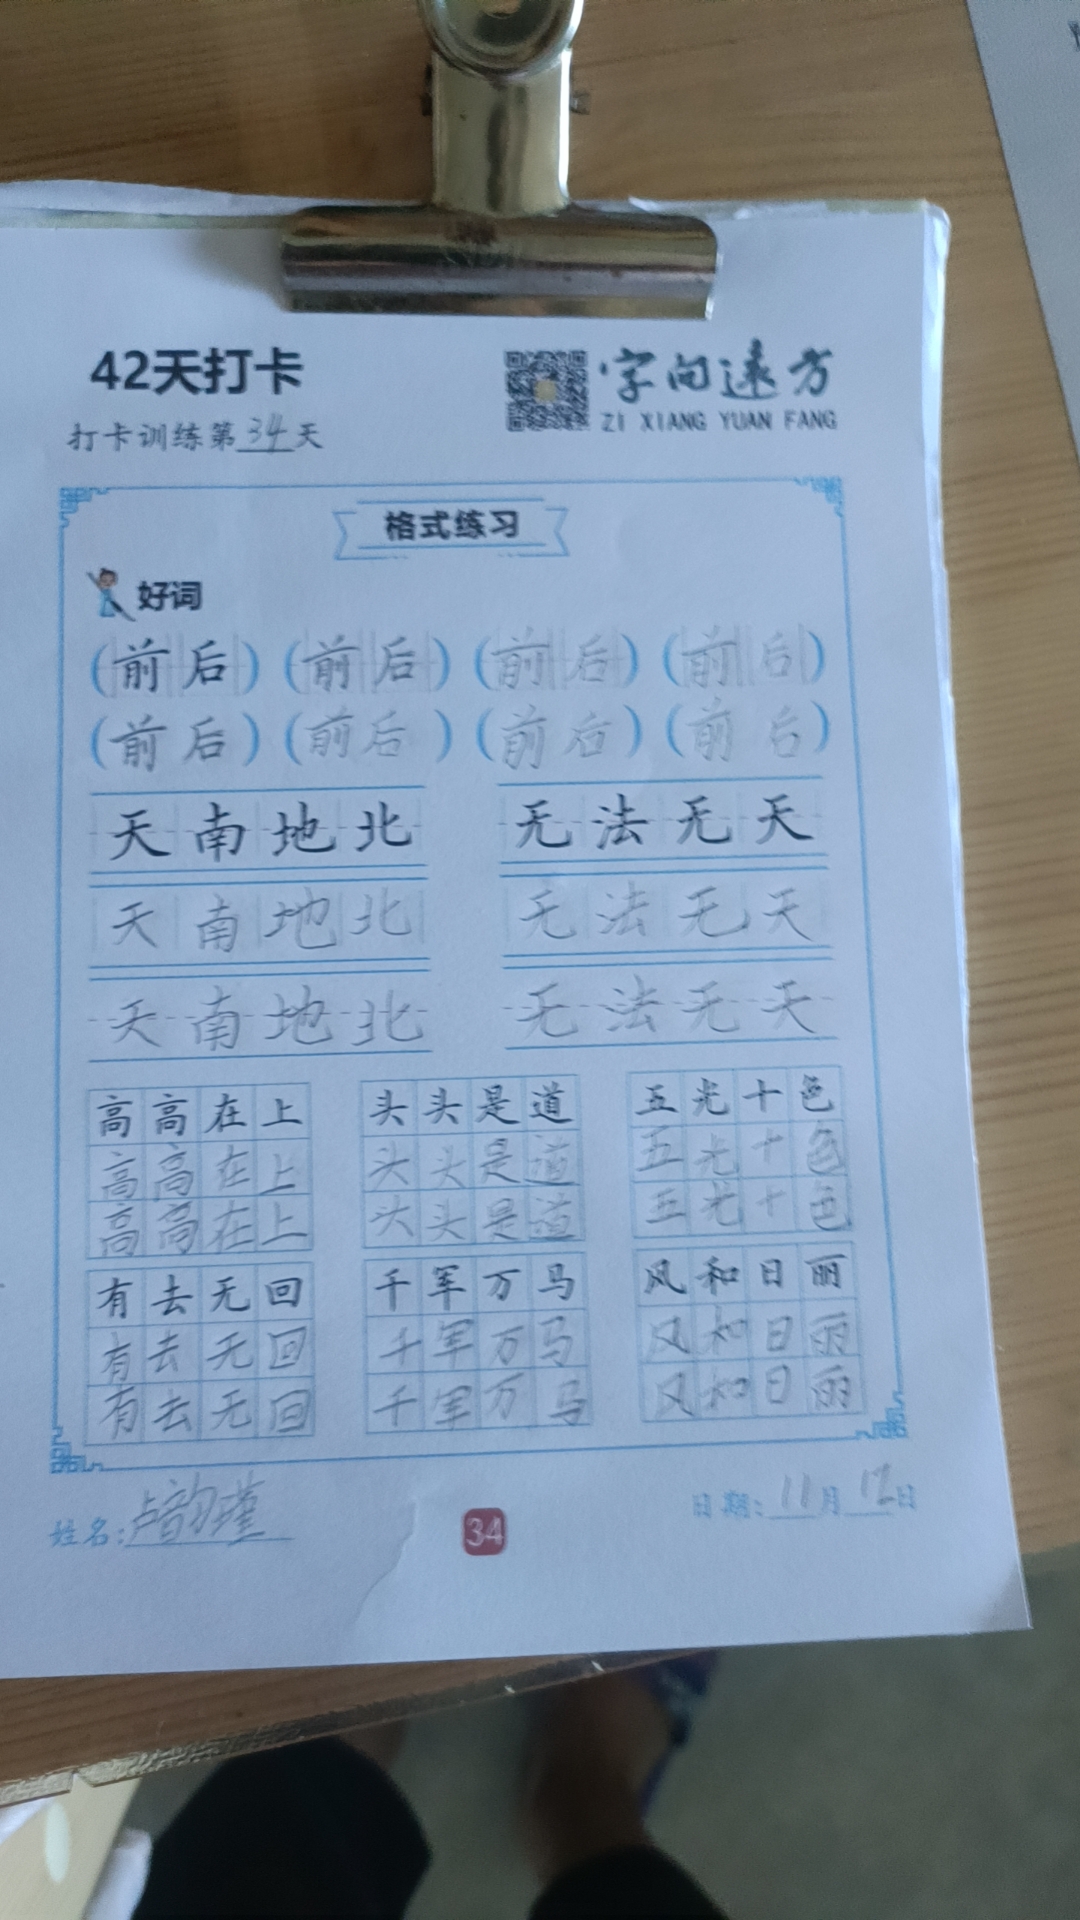 42天打卡
字向远方
ZI XIANG YUAN FANG
打卡训练第34天
格式练习
好词
(前后) (前后) (前后) (前后)
(前后) (前后) (前后) (前后)
天南地北 无法无天
天南地北 无法无天
天南地北 无法无天
高高在上 头头是道 五光十色
高高在上 头头是道 五光十色
高高在上 头头是道 五光十色
有去无回 千军万马 风和日丽
有去无回 千军万马 风和日丽
有去无回 千军万马 风和日丽
姓名:卢韵瑾
34
日期:11月12日